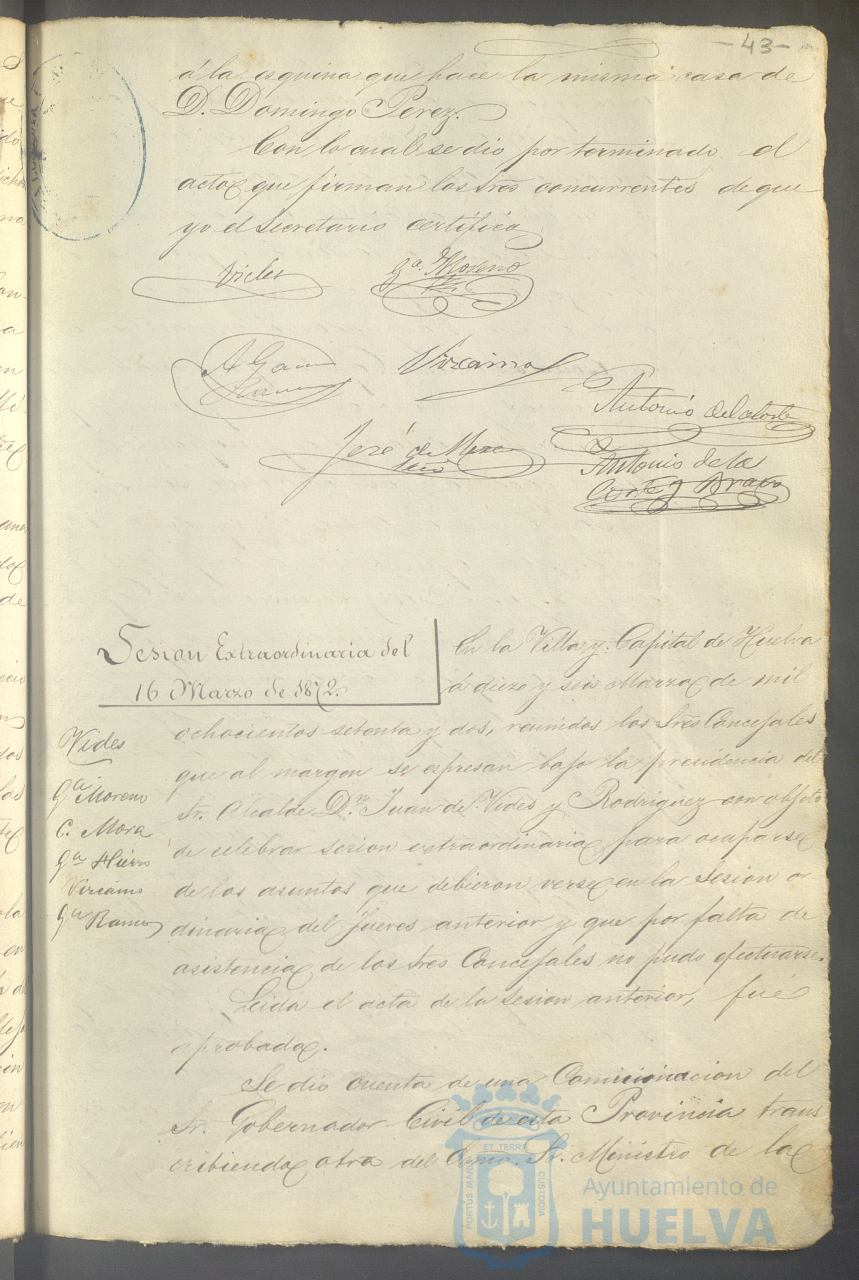 -43-
á la esquina que hace la misma casa de
D. Domingo Perez.
Con lo cuál se dió por terminado el
acto que firman los Sres concurrentes de que
yo el Secretario certifico
Vides
Gª Moreno
Vizcaino
Antonio de la Corte
José de Mora
Antonio de la
Corte y Bravo
Sesion Extraordinaria del
16 Marzo de 1872.
En la Villa y Capital de Huelva
á diez y seis Marzo de mil
ochocientos setenta y dos, reunidos los Sres Concejales
que al margen se espresan bajo la presidencia del
Sr. Alcalde Dn Juan de Vides y Rodriguez con objeto
de celebrar sesion extraordinaria para ocuparse
de los asuntos que debieron verse en la Sesion or
dinaria del jueves anterior y que por falta de
asistencia de los Sres Concejales no pudo efectuarse.
Leida el acta de la Sesion anterior, fué
aprobada.
Se dió cuenta de una Comunicacion del
Sr. Gobernador Civil de esta Provincia trans
cribiendo otra del Excmo. Sr. Ministro de la
Vides
Gª Moreno
C. Mora
Gª Hierro
Vizcaino
Gª Ramos
PORTUS MARIS
ET TERRÆ
CUSTODIA
Ayuntamiento de
HUELVA